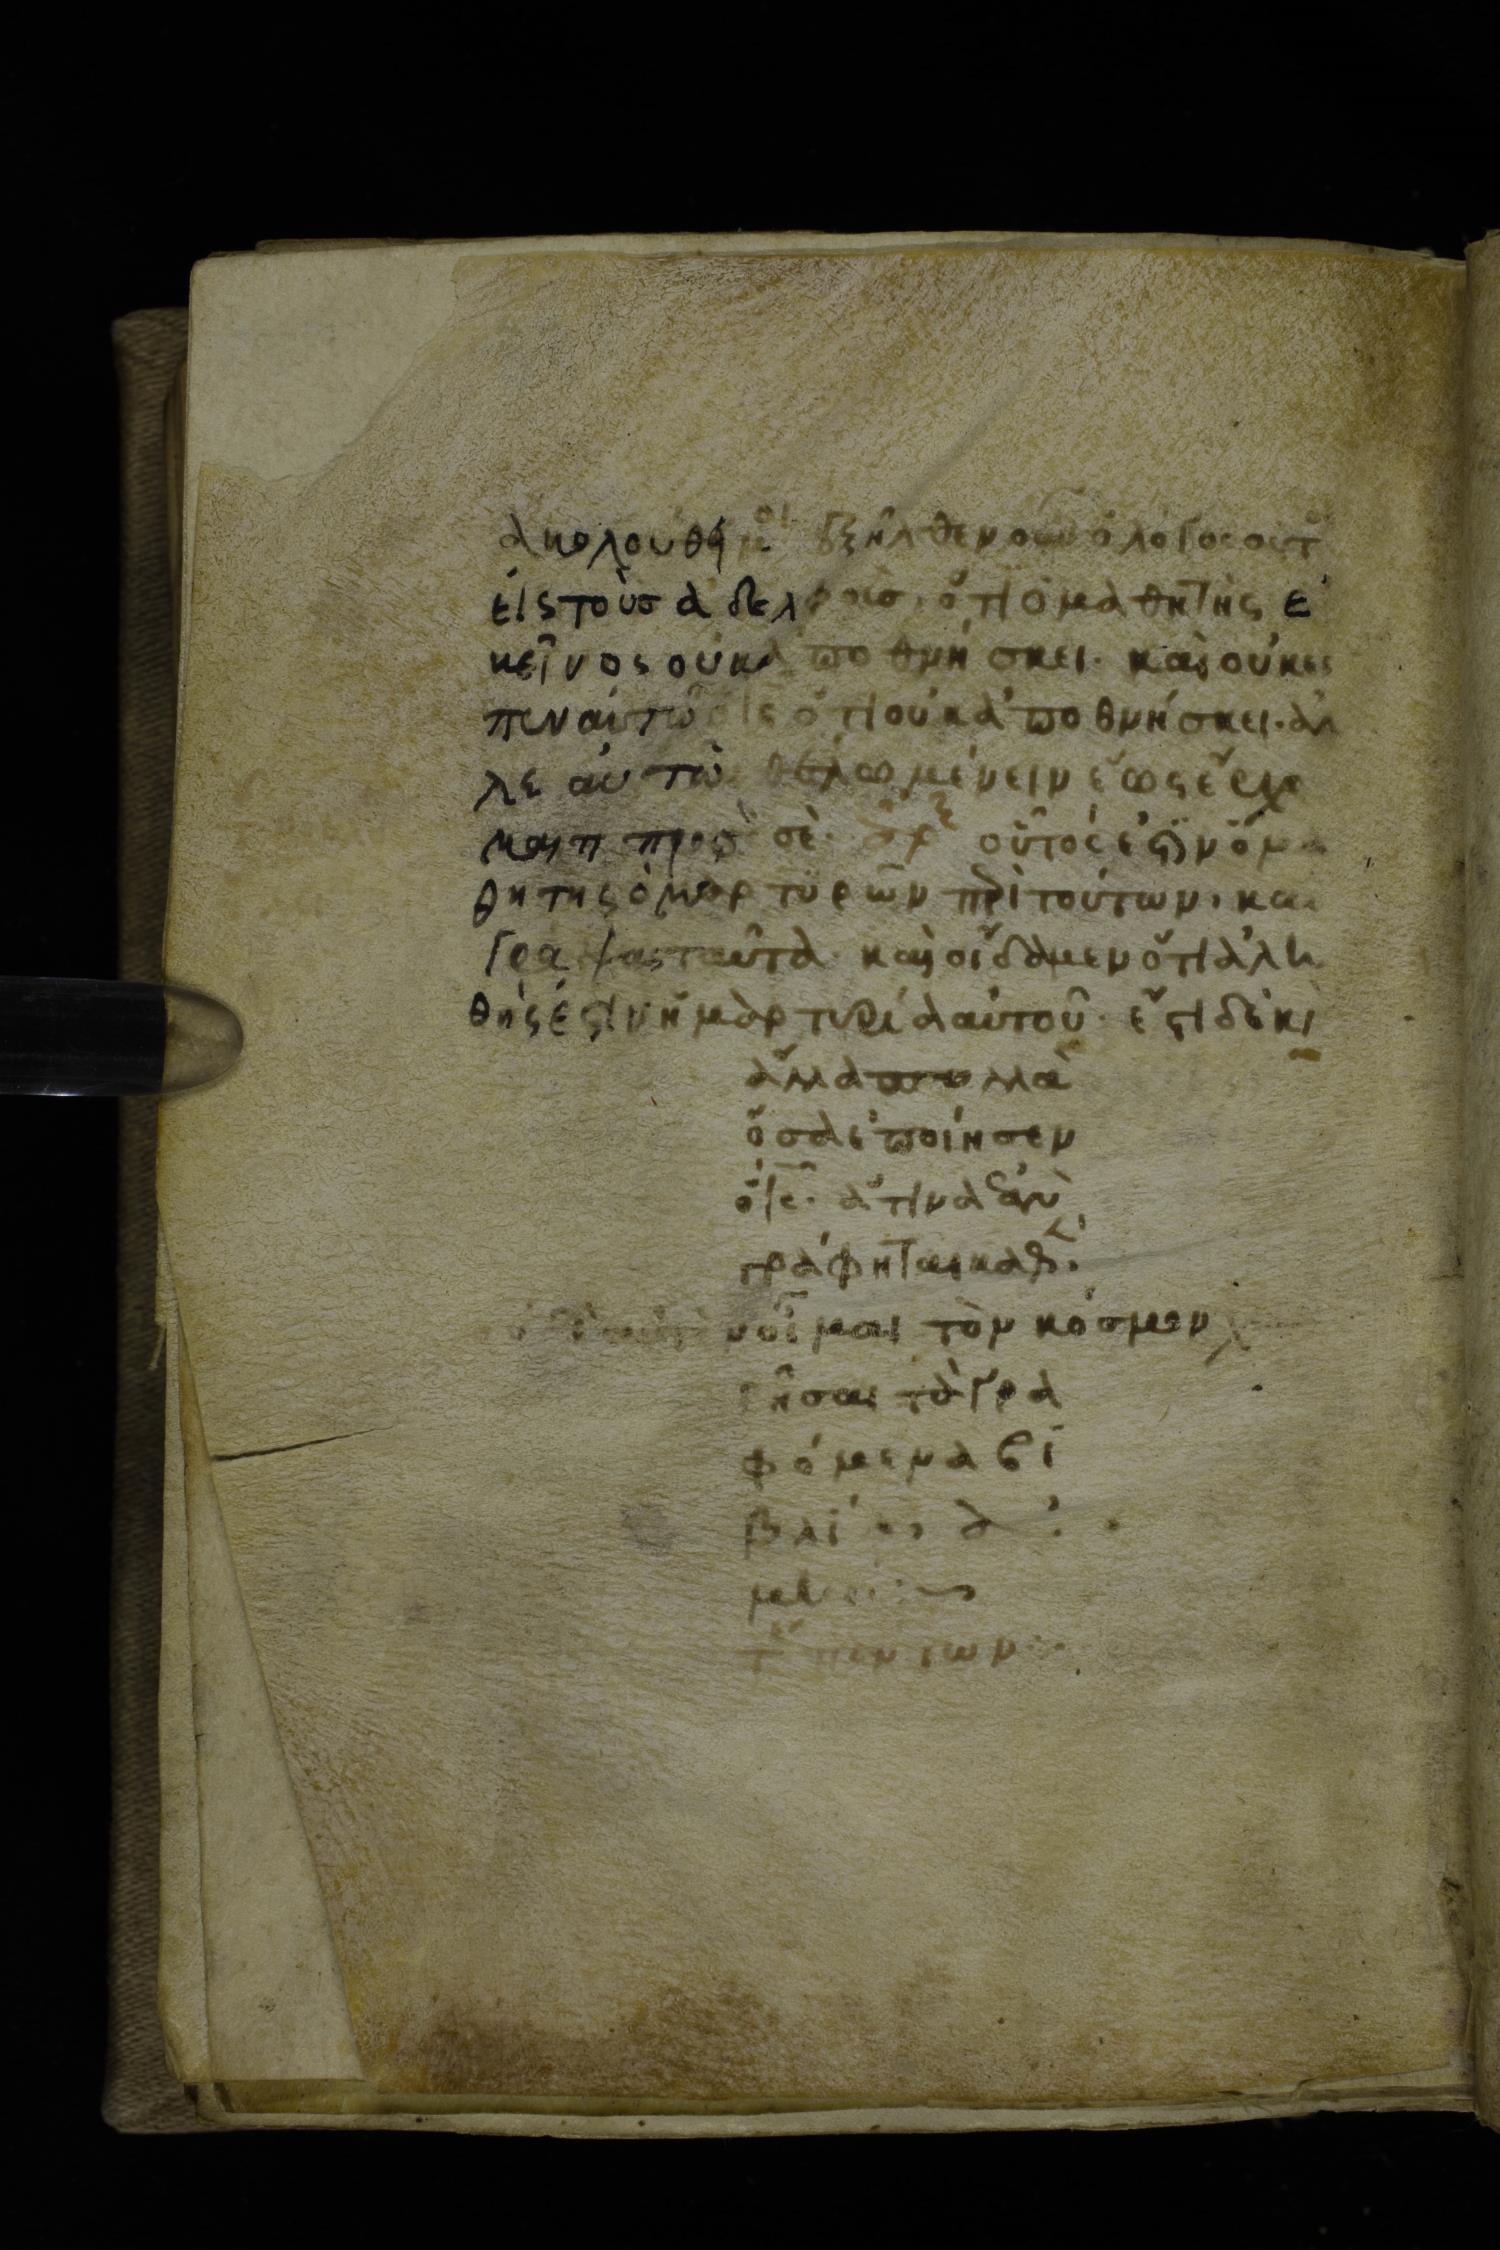 ἀκολούθει μοι ἐξῆλθεν οὖν ὁ λόγος οὗτ
εἰς τοὺς ἀδελφοὺς, ὅτι ὁ μαθητὴς ἐ
κεῖνος οὐκ ἀποθνήσκει· καὶ οὐκ εἶ
πεν αὐτῷ ὁ ις ὅτι οὐκ ἀποθνήσκει· ἀλ
λε αὐτὸ θέλω μένειν ἕως ἔρχο
προς σέ· οὗτός ἐστιν ὁ μα
θητης ὁ μαρτυρῶν περὶ τούτων, και
γράψας ταῦτα· καὶ οἴδαμεν ὅτι ἀλη
θής ἐστιν ἡ μαρτυρία αὐτοῦ· ἔστι δὲ κ
ἄλλα πολλὰ
ὅσα ἐποίησεν
ὁ ις· ἅτινα ἐὰν
γράφηται καθ
οἶμαι τὸν κόσμον
ῆσαι τὰ γρα
φόμενα βι
βλί